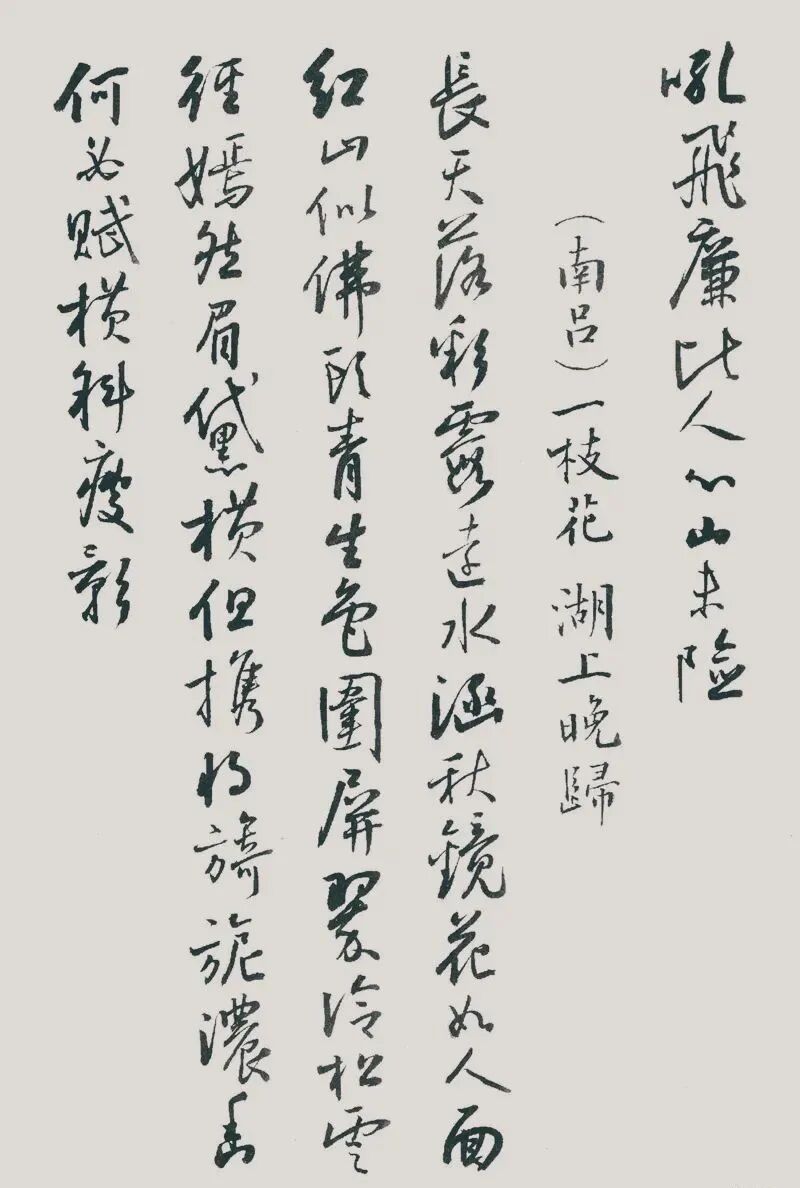 吼飛廉比人心山未險
（南呂）一枝花 湖上晚歸
長天落彩霞遠水涵秋鏡花如人面
紅山似佛頭青生色圍屏翠冷松雲
徑嫣然眉黛橫但攜將旖旎濃香
何必賦橫斜瘦影